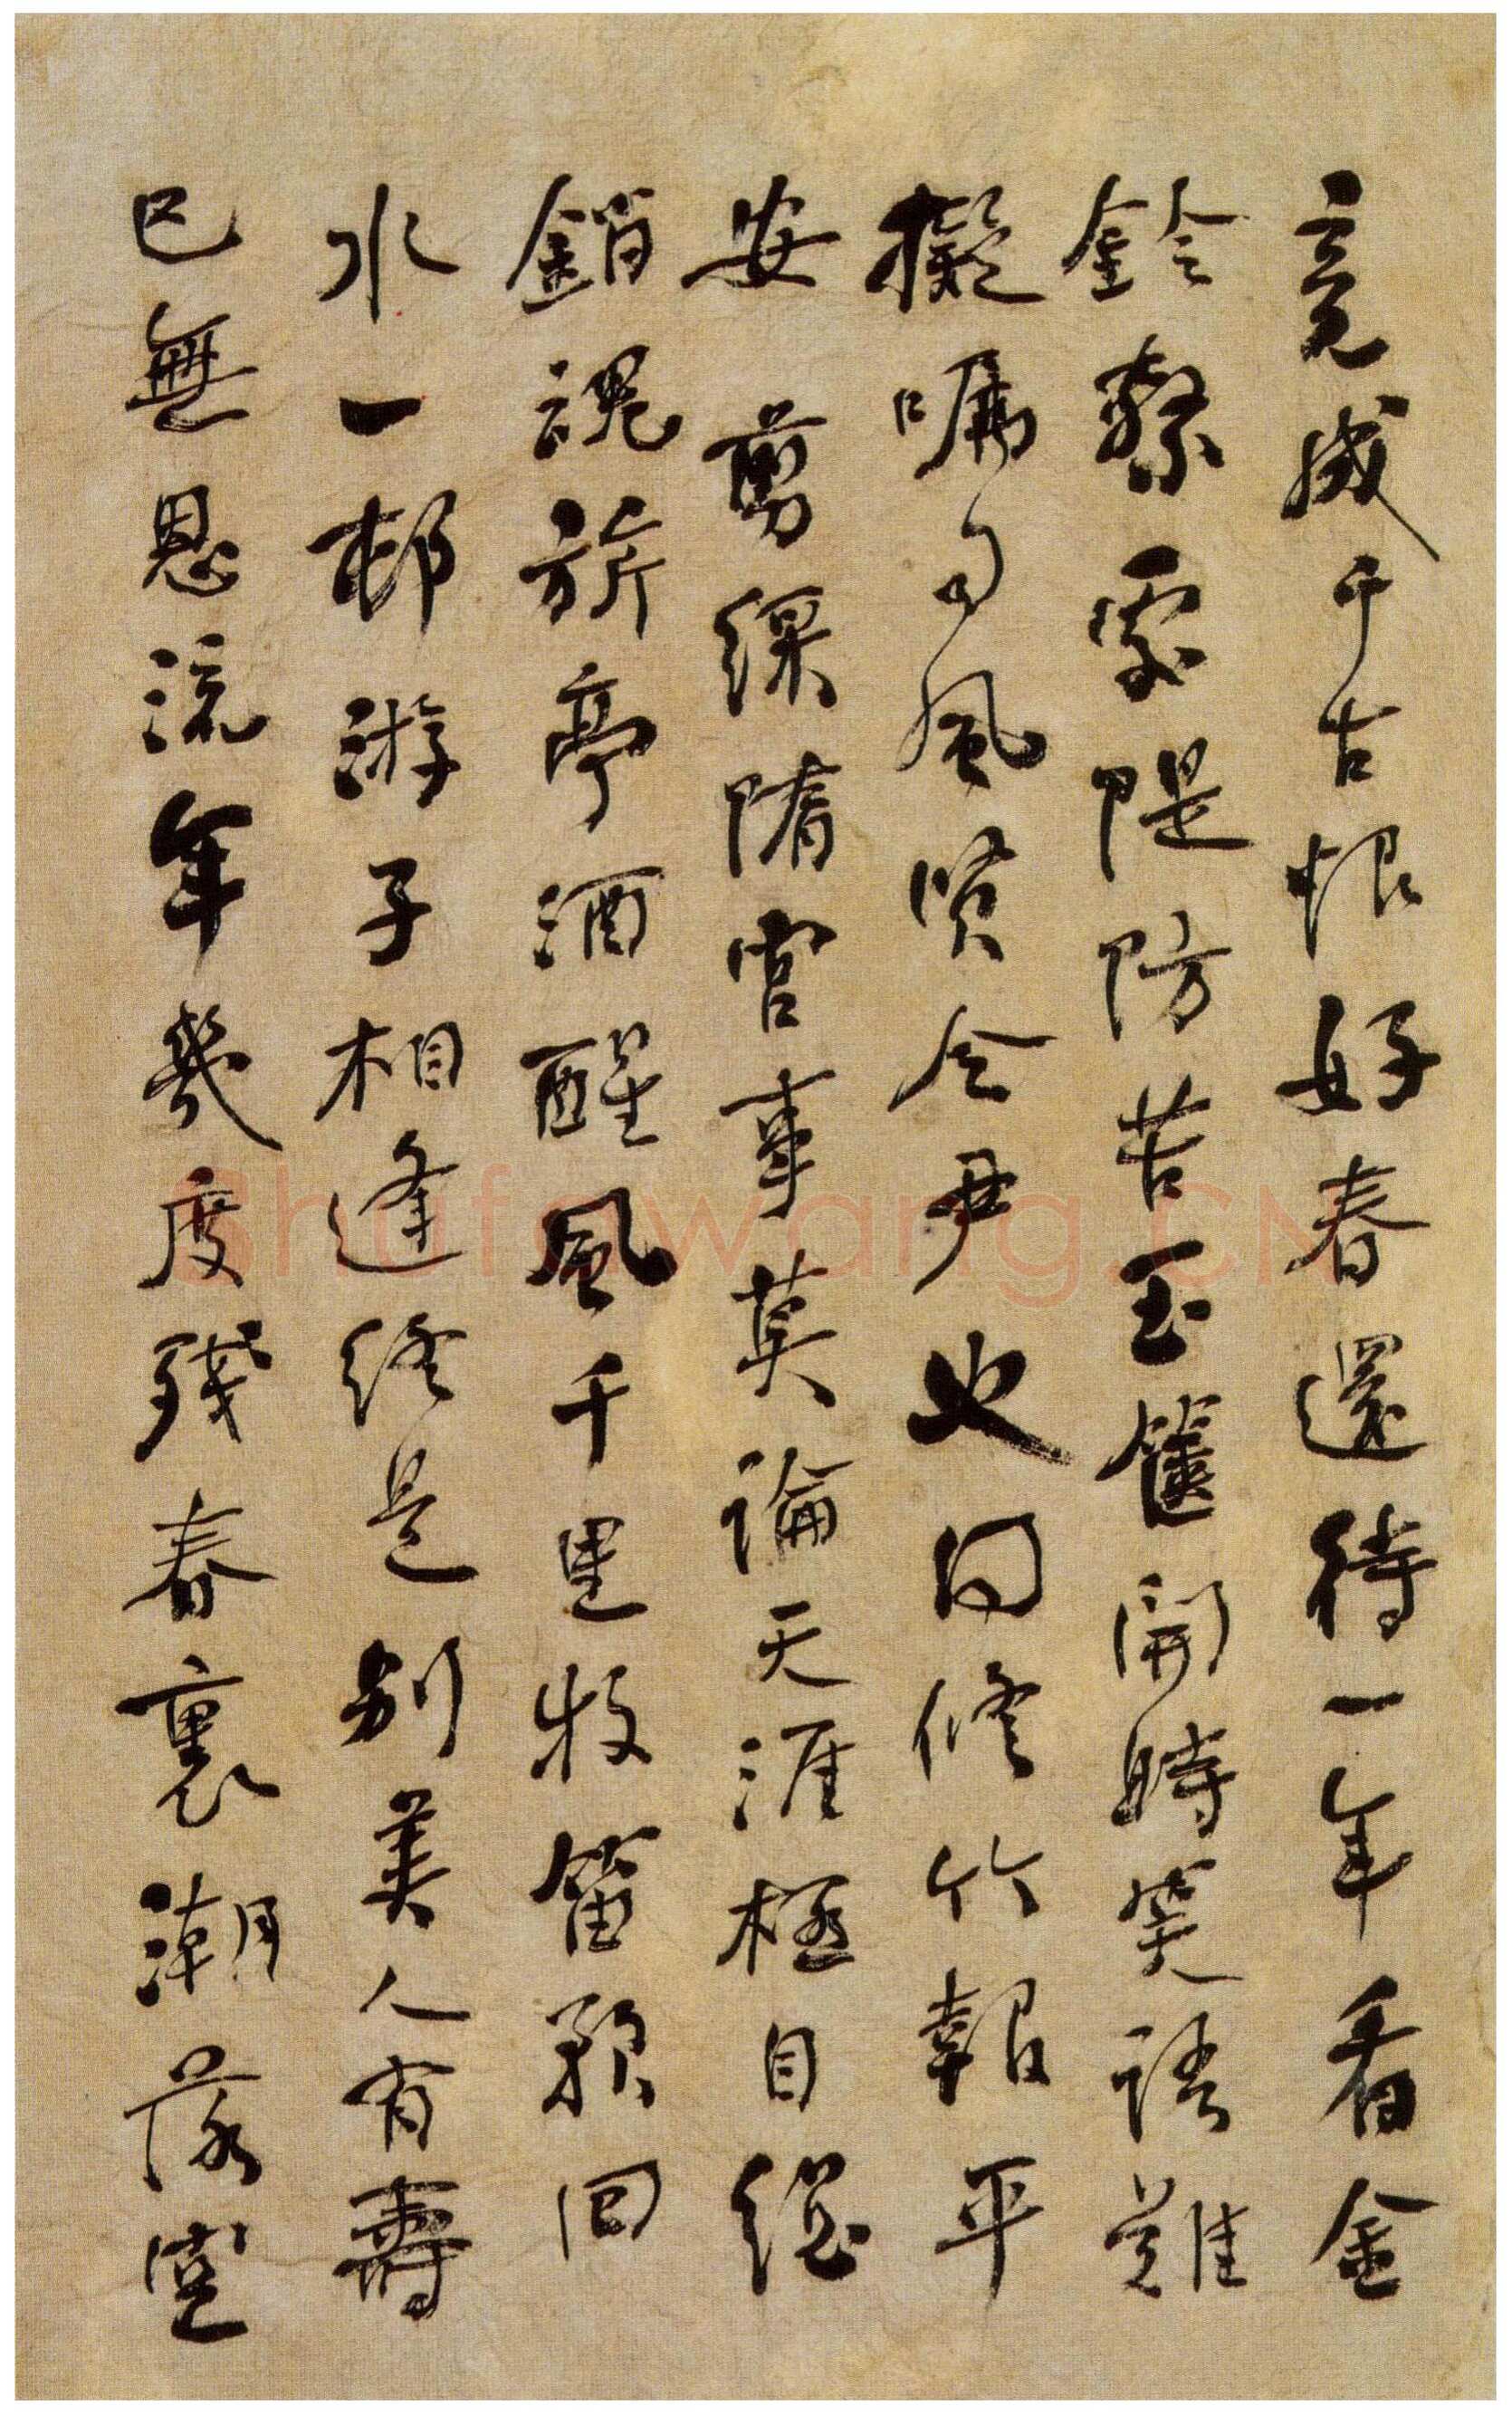 竟成千古恨好春還待一年看金
鈴繫處隄防苦玉篋開時笑語難
擬囑司風賢令尹也同修竹報平
安 剪綵隋宮事莫論天涯極目總
銷魂旂亭酒醒風千里牧笛歌回
水一邨游子相逢終是別美人有壽
已無恩流年幾度殘春裏潮落空
shufawang.CN